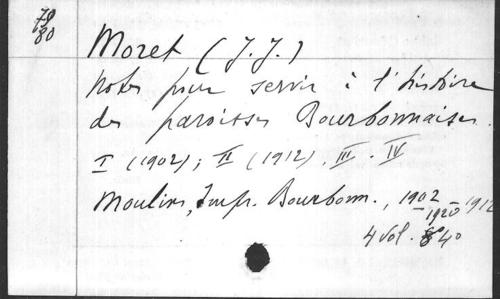 79
80
Moret (J. J.)
Notes pour servir à l'histoire
des paroisses Bourbonnaises.
I (1902); II (1912). III. IV
Moulins, Imp. Bourbonn., 1902
-1920-1912
4 vol. 8º 40